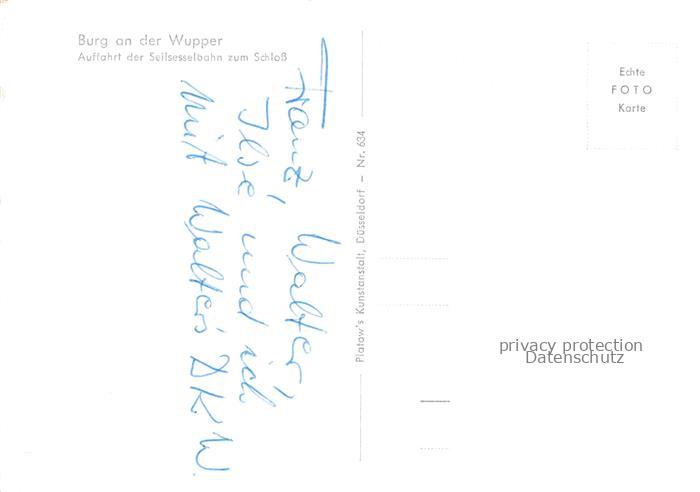 Burg an der Wupper
Auffahrt der Seilsesselbahn zum Schloß
Franz, Walter,
Ilse und ich
Mit Walters DKW
Plataw's Kunstanstalt, Düsseldorf – Nr. 634
Echte
FOTO
Karte
privacy protection
Datenschutz